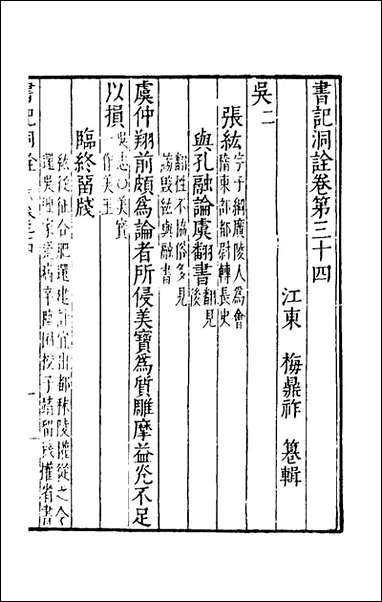 書記洞詮卷第三十四
江東 梅鼎祚 纂輯
吳二
張紘 字子綱廣陵人為會
稽東部都尉轉長史
與孔融論虞翻書 翻見
後
翻性不協俗多見
謗毀紘與融書
虞仲翔前頗為論者所侵美寶為質雕摩益光不足
以損 吳志○美寶
一作美玉
臨終留牋
紘從征合肥還建計宜出都秣陵權從之令
還吳迎家道病卒臨困授子靖留牋權省書